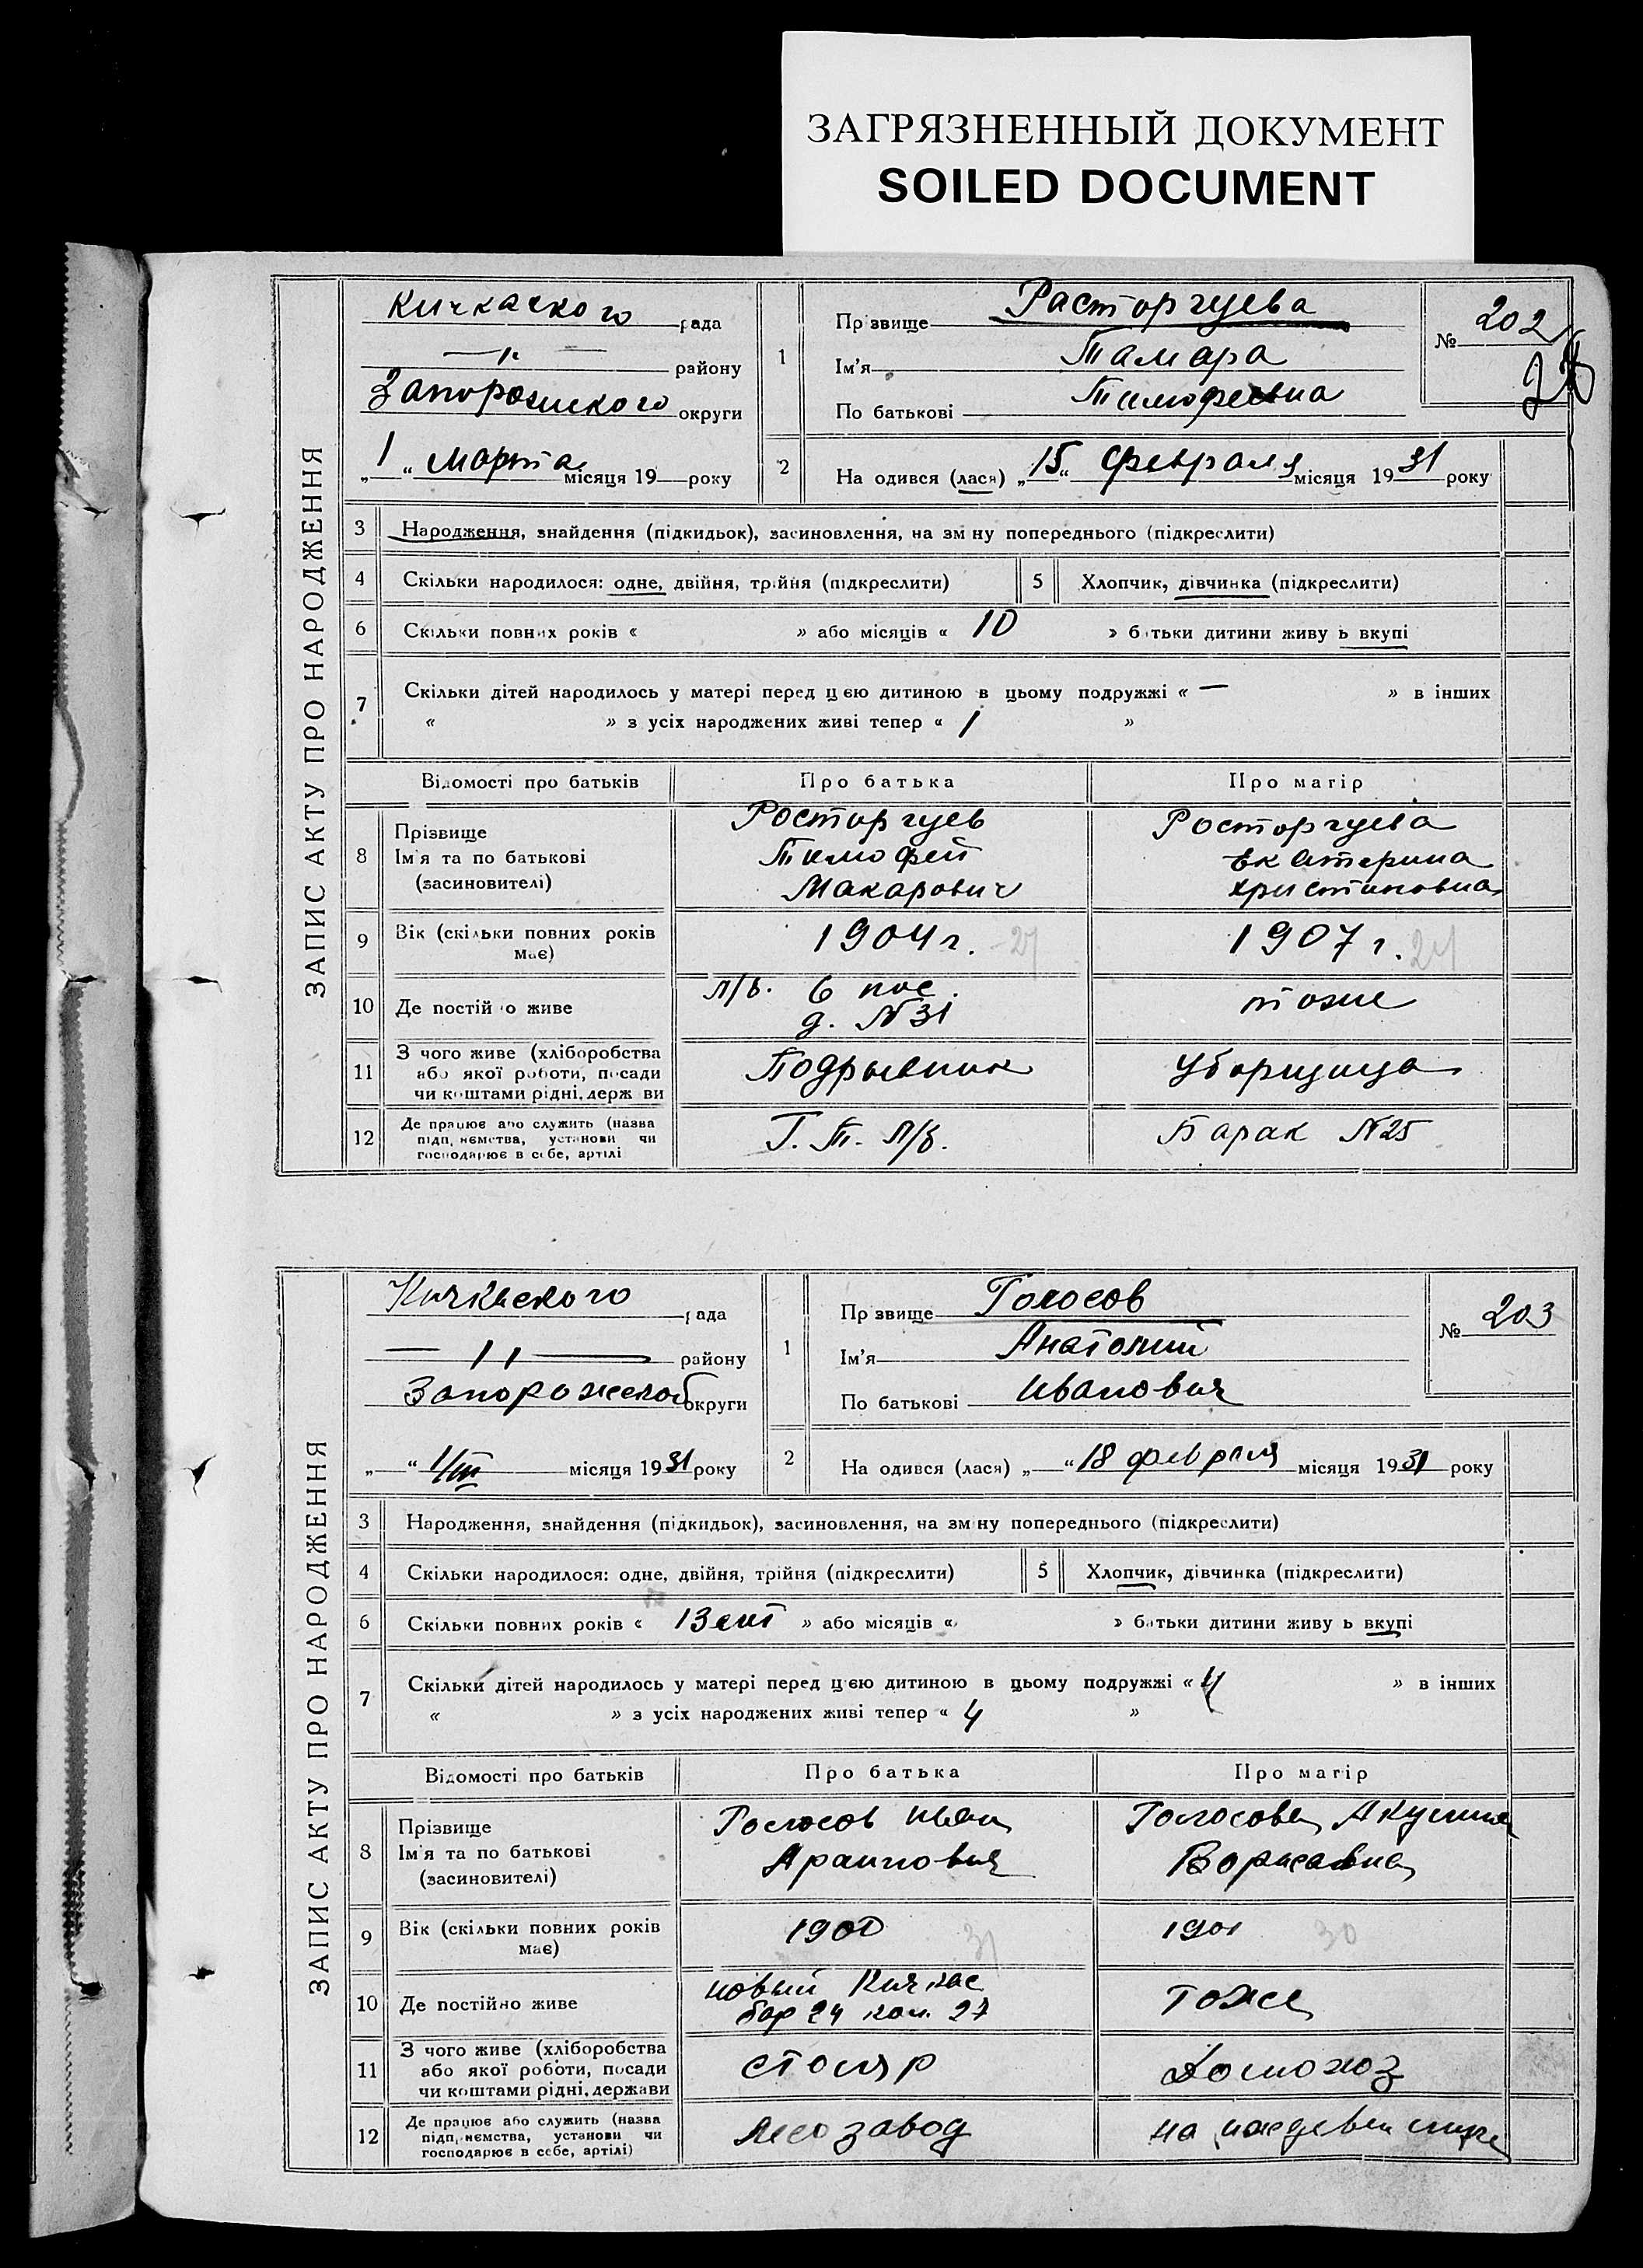 ЗАГРЯЗНЕННЫЙ ДОКУМЕНТ
SOILED DOCUMENT
ЗАПИС АКТУ ПРО НАРОДЖЕННЯ
Кичкаского рада
—"— району
Запорожского округи
„1" Марта місяця 19 року
1 Прізвище Расторгуева
Ім'я Тамара
По батькові Тимофеевна
№ 202
2 Народився (лася) „15" Февраля місяця 1931 року
3 Народження, знайдення (підкидьок), засиновлення, на зміну попереднього (підкреслити)
4 Скільки народилося: одне, двійня, трійня (підкреслити) 5 Хлопчик, дівчинка (підкреслити)
6 Скільки повних років « » або місяців « 10 » батьки дитини живуть вкупі
7 Скільки дітей народилось у матері перед цією дитиною в цьому подружжі « — » в інших
« » з усіх народжених живі тепер « 1 »
Відомості про батьків Про батька Про матір
8 Прізвище
Ім'я та по батькові
(засиновителі)
Росторгуев
Тимофей
Макарович
Росторгуева
Екатерина
Христиновна
9 Вік (скільки повних років має) 1904 г. 27 1907 г. 24
10 Де постійно живе
л/б. 6 пос.
д. №31
тоже
11 З чого живе (хліборобства
або якої роботи, посади
чи коштами рідні, держави
Подрывник Уборщица
12 Де працює або служить (назва
підприємства, установи чи
господарює в себе, артілі
Г. Т. Л/б. Барак №25
ЗАПИС АКТУ ПРО НАРОДЖЕННЯ
Кичкаского рада
—"— району
Запорожской округи
„ " 1/III місяця 1931 року
1 Прізвище Голосов
Ім'я Анатолий
По батькові Иванович
№ 203
2 Народився (лася) „ " 18 февраля місяця 1931 року
3 Народження, знайдення (підкидьок), засиновлення, на зміну попереднього (підкреслити)
4 Скільки народилося: одне, двійня, трійня (підкреслити) 5 Хлопчик, дівчинка (підкреслити)
6 Скільки повних років « 13 лет » або місяців « » батьки дитини живуть вкупі
7 Скільки дітей народилось у матері перед цією дитиною в цьому подружжі « 4 » в інших
« » з усіх народжених живі тепер « 4 »
Відомості про батьків Про батька Про матір
8 Прізвище
Ім'я та по батькові
(засиновителі)
Голосов Иван
Голосова Акулина
Борисовна
9 Вік (скільки повних років має) 1900 31 1901 30
10 Де постійно живе
новый Кичкас
бар 24 ком. 27
Тоже
11 З чого живе (хліборобства
або якої роботи, посади
чи коштами рідні, держави
столяр Домохоз
12 Де працює або служить (назва
підприємства, установи чи
господарює в себе, артілі)
Лесозавод на иждевен